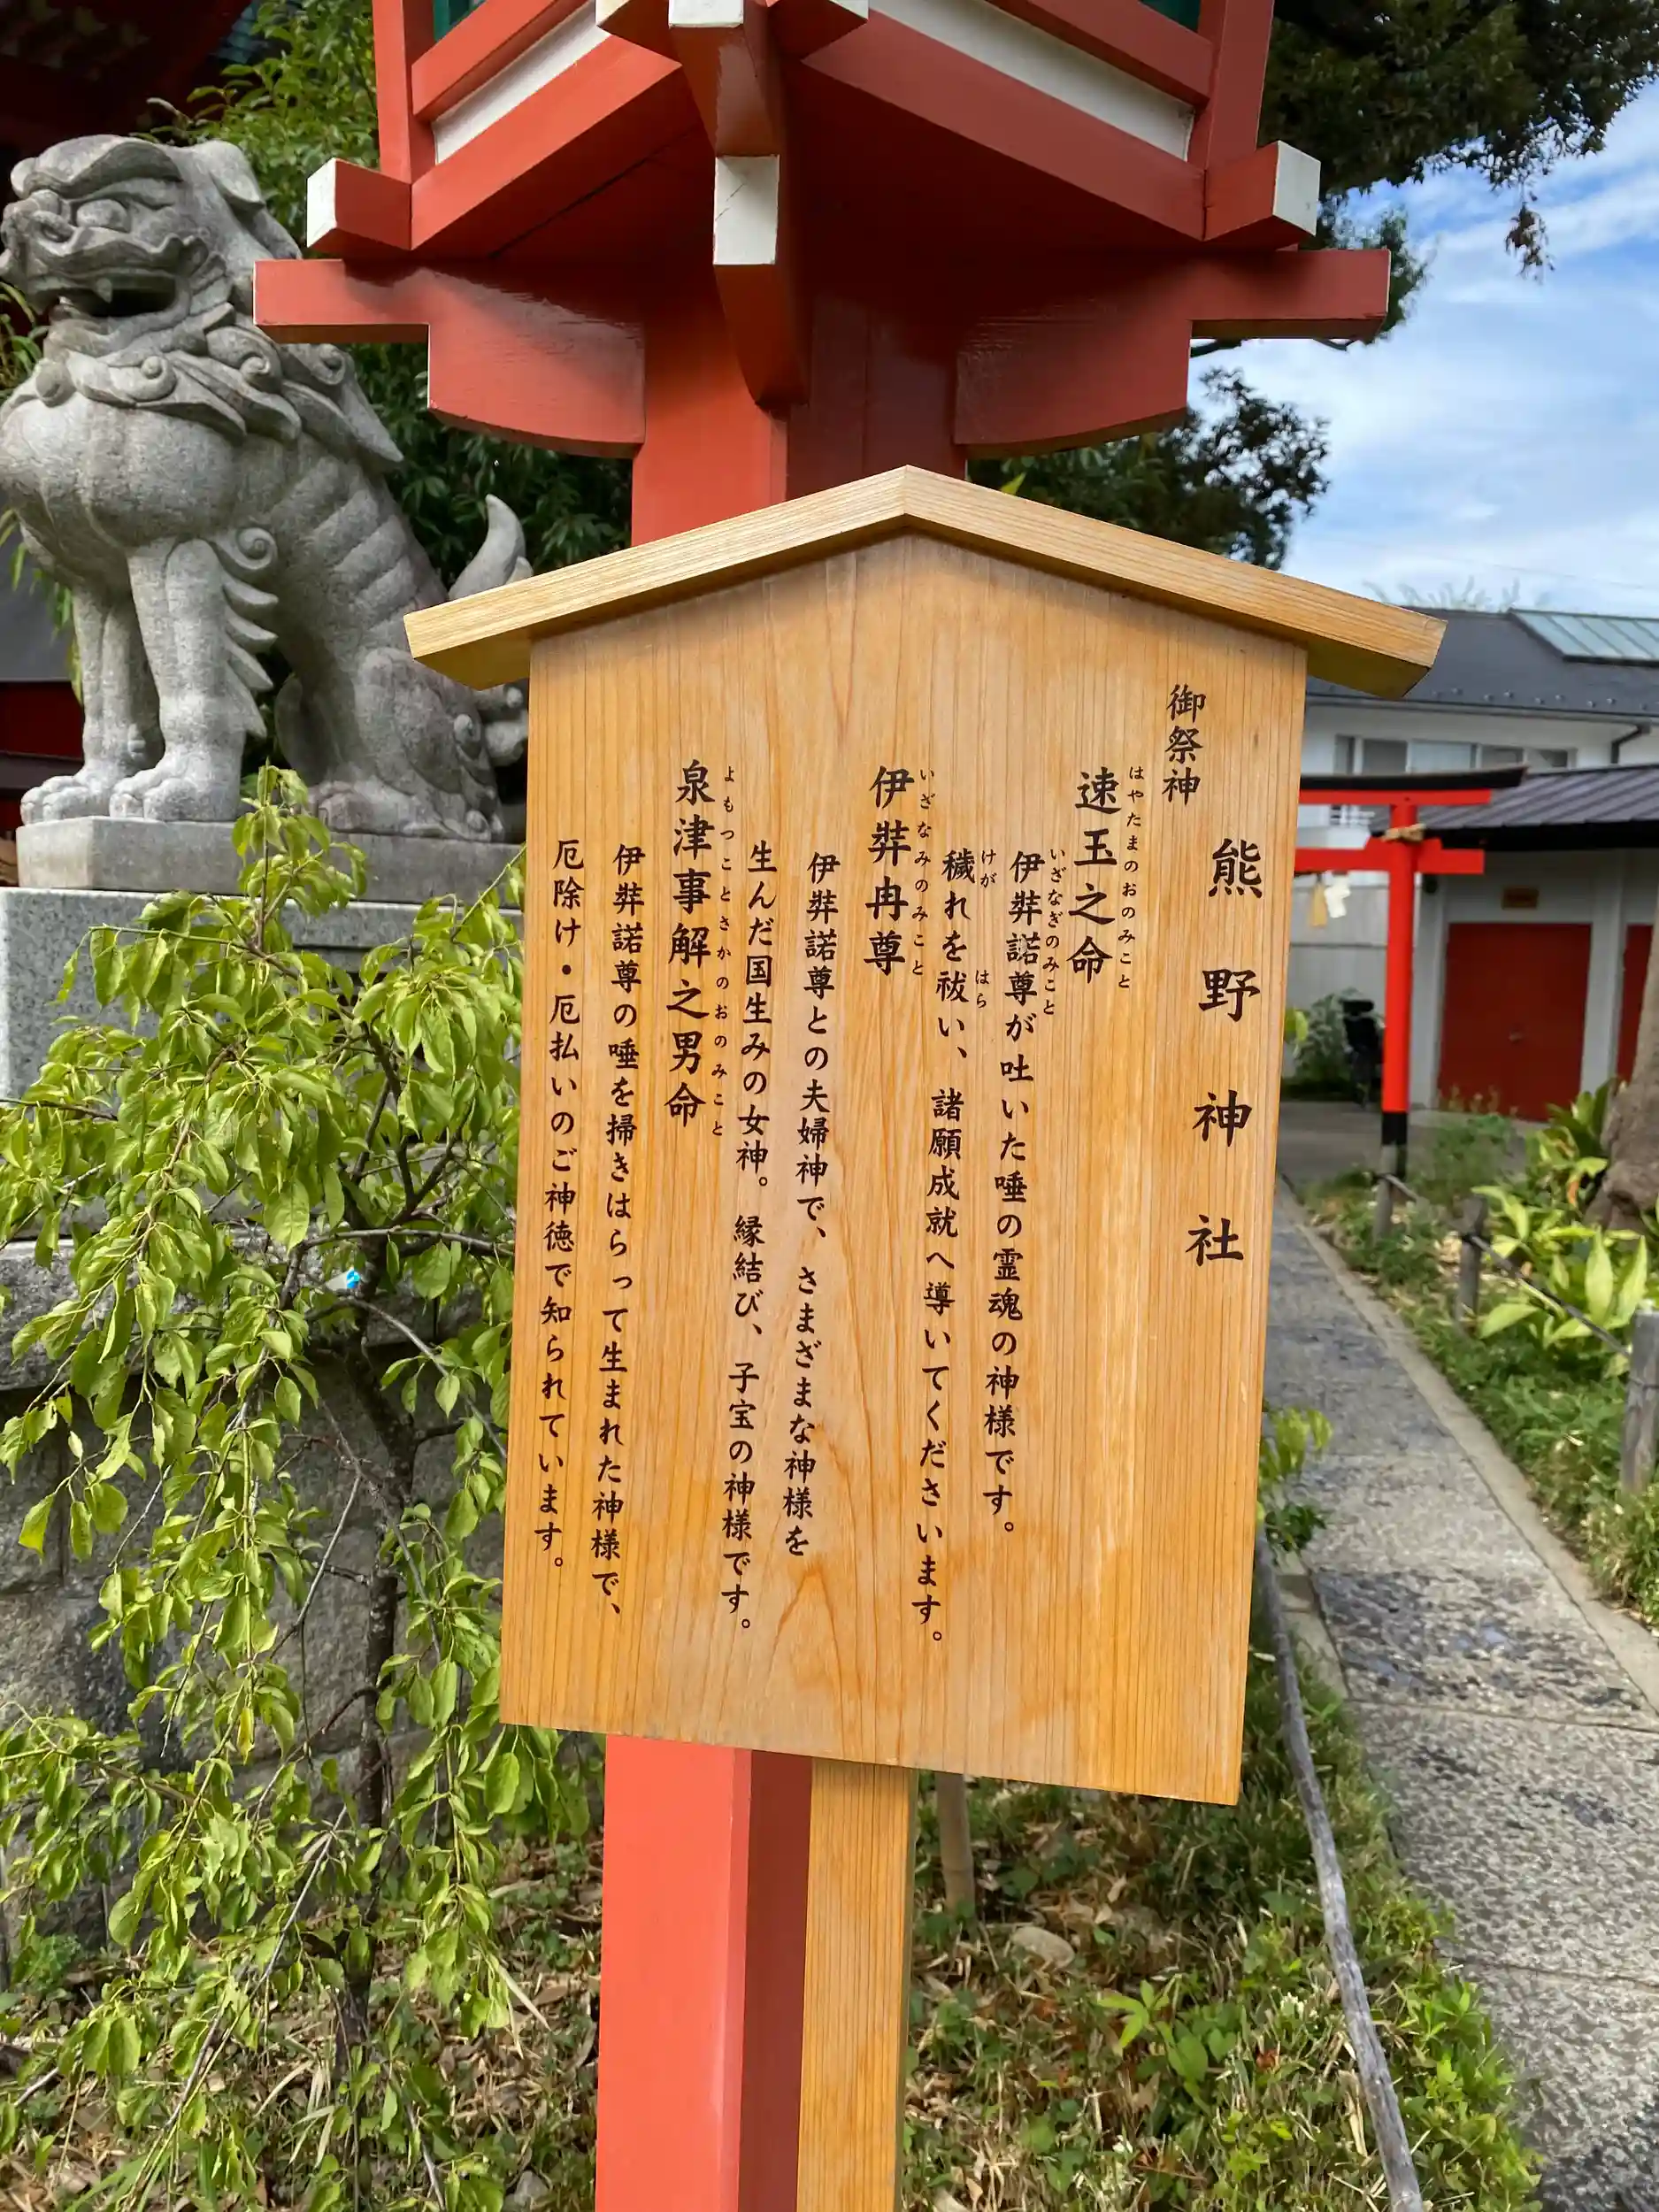 熊野神社
御祭神
はやたまのおのみこと
速玉之命
いざなぎのみこと
伊弉諾尊が吐いた唾の霊魂の神様です。
けが はら
穢れを祓い、諸願成就へ導いてくださいます。
いざなみのみこと
伊弉冉尊
伊弉諾尊との夫婦神で、さまざまな神様を
生んだ国生みの女神。縁結び、子宝の神様です。
よもつことさかのおのみこと
泉津事解之男命
伊弉諾尊の唾を掃きはらって生まれた神様で、
厄除け・厄払いのご神徳で知られています。